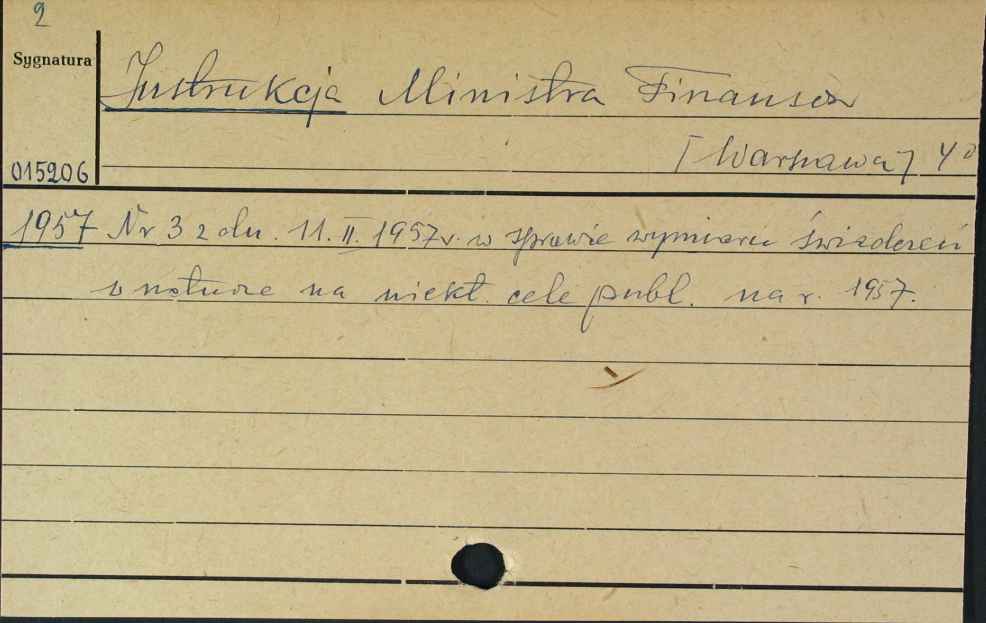 2
Sygnatura
Instrukcja Ministra Finansów
[Warszawa] 4°
015206
1957 Nr 3 z dn. 11.II.1957r. w sprawie wymiaru świadczeń
w naturze na niekt. cele publ. na r. 1957.